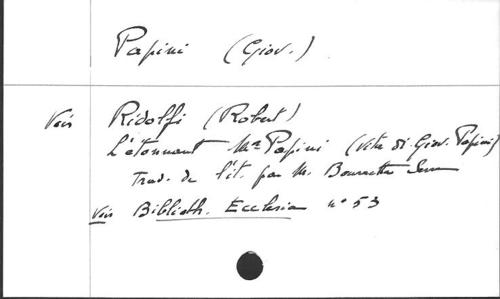 Papini (Giov.)
Voir Ridolfi (Robert)
L'étonnant Mr Papini (Vita di Giov. Papini)
Trad. de l'it. par M. Bourrette Serre
Voir Biblioth. Ecclesia n° 53